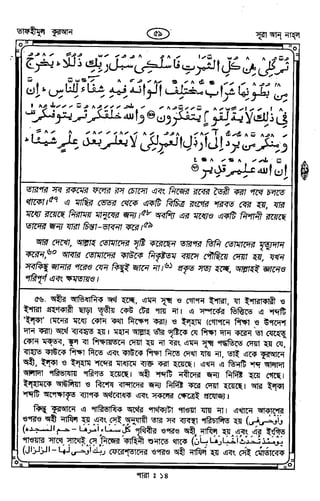 তাফহীমুল কুরআন
৫৯
সূরা আন্ নাহল
ثُمَّ كُلِيْ مِنْ كُلِّ الثَّمَرٰتِ فَاسْلُكِيْ سُبُلَ رَبِّكِ ذُلُلًا ؕ يَخْرُجُ
مِنْۢ بُطُوْنِهَا شَرَابٌ مُّخْتَلِفٌ اَلْوَانُهٗ فِيْهِ شِفَآءٌ لِّلنَّاسِ ؕ اِنَّ
فِيْ ذٰلِكَ لَاٰيَةً لِّقَوْمٍ يَّتَفَكَّرُوْنَ ۞ وَاللّٰهُ خَلَقَكُمْ ثُمَّ يَتَوَفّٰىكُمْ ۙ
وَمِنْكُمْ مَّنْ يُّرَدُّ اِلٰٓى اَرْذَلِ الْعُمُرِ لِكَيْ لَا يَعْلَمَ بَعْدَ عِلْمٍ شَيْئًا ؕ
اِنَّ اللّٰهَ عَلِيْمٌ قَدِيْرٌ
তারপর সব রকমের ফলের রস চোসো এবং নিজের রবের তৈরী করা পথে চলতে
থাকো।৫৭ এ মাছির ভেতর থেকে একটি বিচিত্র রংগের শরবত বের হয়, যার
মধ্যে রয়েছে নিরাময় মানুষের জন্য।৫৮ অবশ্যি এর মধ্যেও একটি নিশানী রয়েছে
তাদের জন্য যারা চিন্তা-ভাবনা করে।৫৯
আর দেখো, আল্লাহ তোমাদের সৃষ্টি করেছেন তারপর তিনি তোমাদের মৃত্যুদান
করেন,৬০ আবার তোমাদের কাউকে নিকৃষ্টতম বয়সে পৌঁছিয়ে দেয়া হয়, যখন
সবকিছু জানার পরেও যেন কিছুই জানে না।৬১ প্রকৃত সত্য হচ্ছে, আল্লাহই জানেও
পরিপূর্ণ এবং ক্ষমতায়ও।
৫৬. অহীর আভিধানিক অর্থ হচ্ছে, এমন সূক্ষ্ম ও গোপন ইশারা, যা ইশারাকারী ও
ইশারা গ্রহণকারী ছাড়া তৃতীয় কেউ টের পায় না। এ সম্পর্কের ভিত্তিতে এ শব্দটি
'ইল্‌কা' (মনের মধ্যে কোন কথা নিক্ষেপ করা) ও ইলহাম (গোপনে শিক্ষা ও উপদেশ
দান করা) অর্থে ব্যবহৃত হয়। মহান আল্লাহ তাঁর সৃষ্টিকে যে শিক্ষা দান করেন তা যেহেতু
কোন মকতব, স্কুল বা শিক্ষায়তনে দেয়া হয় না বরং এমন সূক্ষ্ম পদ্ধতিতে দেয়া হয় যে,
বাহ্যত কাউকে শিক্ষা দিতে এবং কাউকে শিক্ষা নিতে দেখা যায় না, তাই একে কুরআনে
অহী, ইল্‌কা ও ইলহাম শব্দের মাধ্যমে ব্যক্ত করা হয়েছে। এখন এ তিনটি শব্দ আলাদা
আলাদা পরিভাষায় পরিণত হয়েছে। অহী শব্দটি নবীদের জন্য নির্দিষ্ট হয়ে গেছে।
ইলহামকে আউলিয়া ও বিশেষ বান্দাদের জন্য নির্দিষ্ট করে দেয়া হয়েছে। আর ইল্‌কা
শব্দটি অপেক্ষাকৃত ব্যাপক অর্থবোধক এবং সকলের ক্ষেত্রেই প্রযোজ্য।
কিন্তু কুরআনে এ পারিভাষিক অর্থের পার্থক্যটি পাওয়া যায় না। এখানে আকাশের
ওপরও অহী নাযিল হয় এবং সেই অনুযায়ী তার সব ব্যবস্থা পরিচালিত হয় (وَاَوْحٰى فِيْ
كُلِّ سَمَآءٍ اَمْرَهَا - حٰم السجدة) পৃথিবীর ওপরও অহী নাযিল হয় এবং এর ইংগিত
পাওয়ার সাথে সাথেই সে নিজের কাহিনী শুনাতে থাকে (يَوْمَئِذٍ تُحَدِّثُ اَخْبَارَهَا بِاَنَّ
رَبَّكَ اَوْحٰى لَهَا - الزلزال) ফেরেশতাদের ওপরও অহী নাযিল হয় এবং সেই মোতাবেক
পারা : ১৪